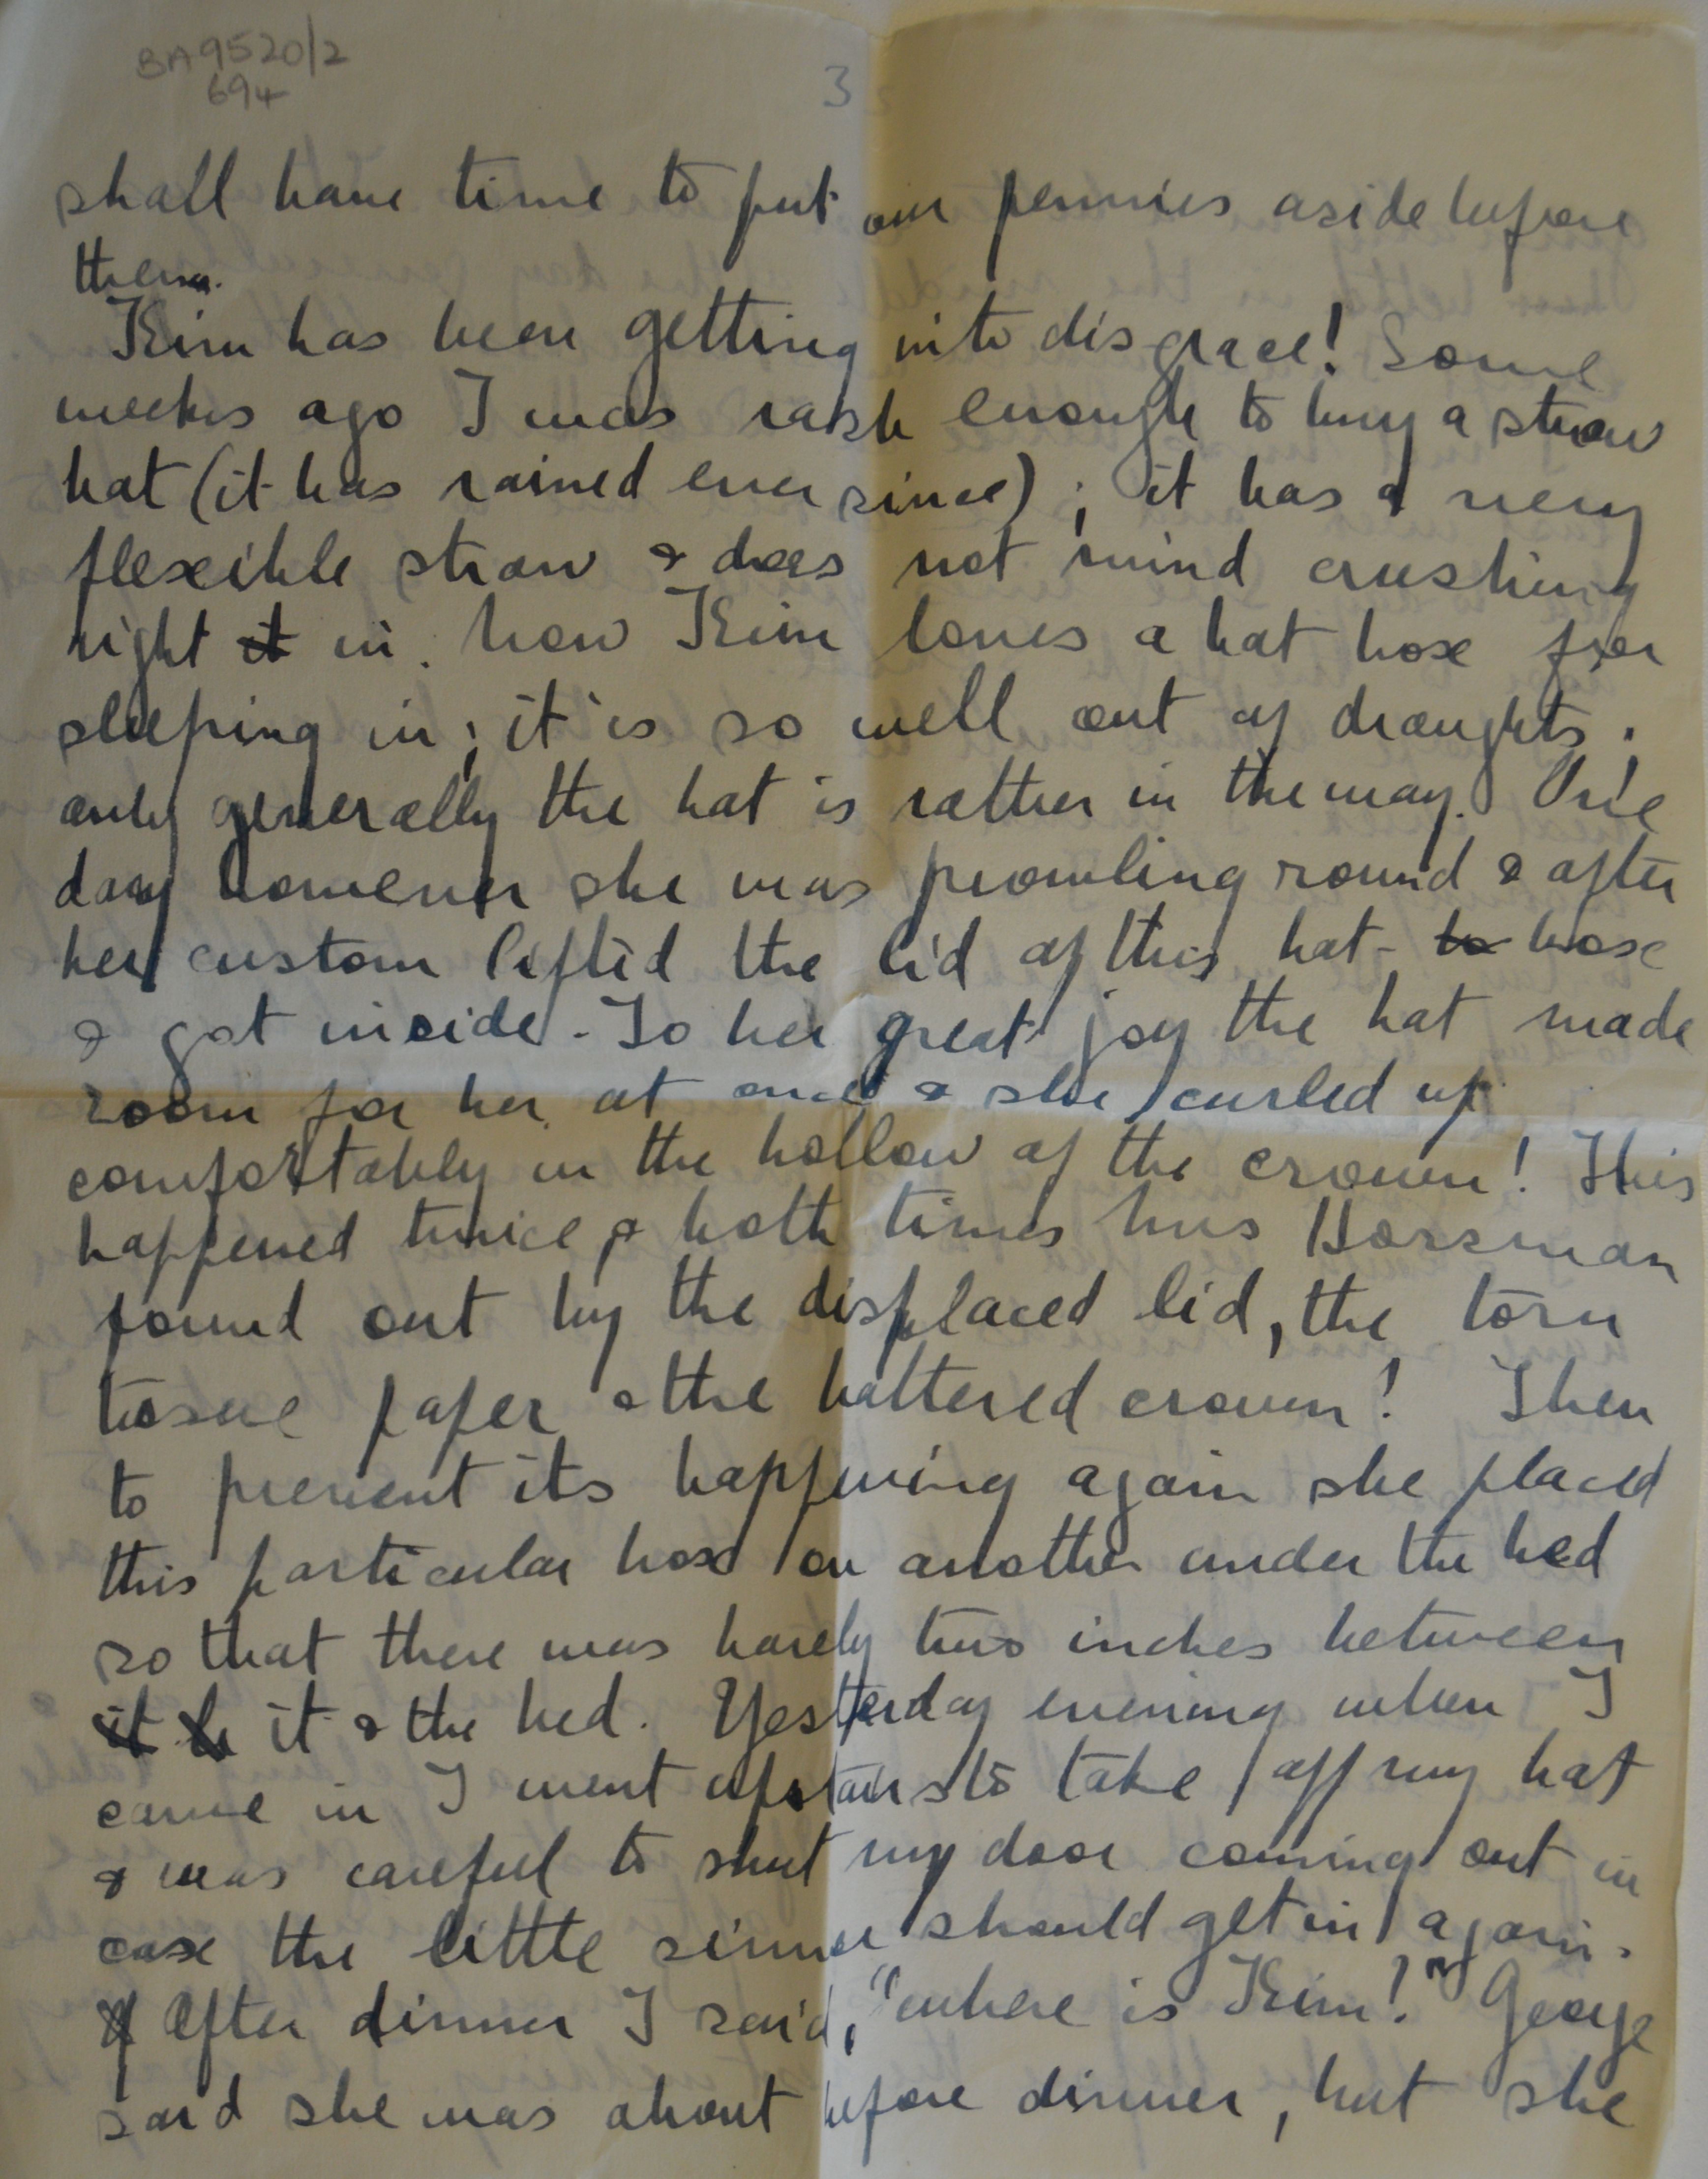 BA9520/2
694
3
shall have time to put our pennies aside before
then.
Kim has been getting into disgrace! Some
weeks ago I was rash enough to buy a straw
hat (it has rained ever since); it has a very
flexible straw & does not mind crushing
right it in. how Kim loves a hat box for
sleeping in; it is so well out of draughts.
only generally the hat is rather in the way. One
day however she was prowling round & after
her custom lifted the lid of this hat- bo box
& got inside. To her great joy the hat made
room for her at once & she curled up
comfortably in the hollow of the crown! This
happened twice & both times Mrs Horsman
found out by the displaced lid, the torn
tissue paper & the battered crown! Then
to prevent its happening again she placed
this particular box on another under the bed
so that there was barely two inches between
it b it & the bed. Yesterday evening when I
came in I went upstairs to take off my hat
& was careful to shut my door coming out in
case the little sinner should get in again.
After dinner I said, "where is Kim!" George
said she was about before dinner, but she